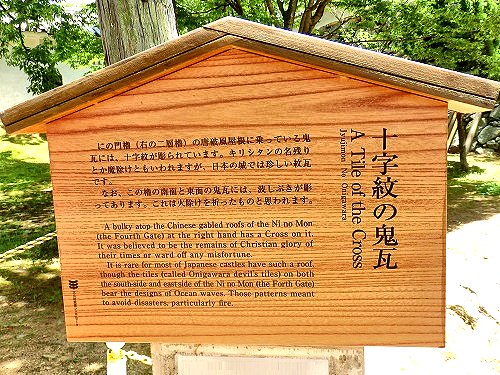 十字紋の鬼瓦
A Tile of the Cross
Jyujimon No Onigawara
にの門櫓（右の二層櫓）の唐破風屋根に乗っている鬼
瓦には、十字紋が彫られています。キリシタンの名残り
とか魔除けともいわれますが、日本の城では珍しい紋瓦
です。
なお、この櫓の南面と東面の鬼瓦には、波しぶきが彫
ってあります。これは火除けを祈ったものと思われます。
A bulky atop the Chinese gabled roofs of the Ni no Mon
(the Fourth Gate) at the right hand has a Cross on it.
It was believed to be the remains of Christian glory of
their times or ward off any misfortune.
It is rare for most of Japanese castles have such a roof,
though the tiles (called Onigawara devil's tiles) on both
the south-side and eastside of the Ni no Mon (the Forth Gate)
bear the designs of Ocean waves. Those patterns meant
to avoid disasters, particularly fire.